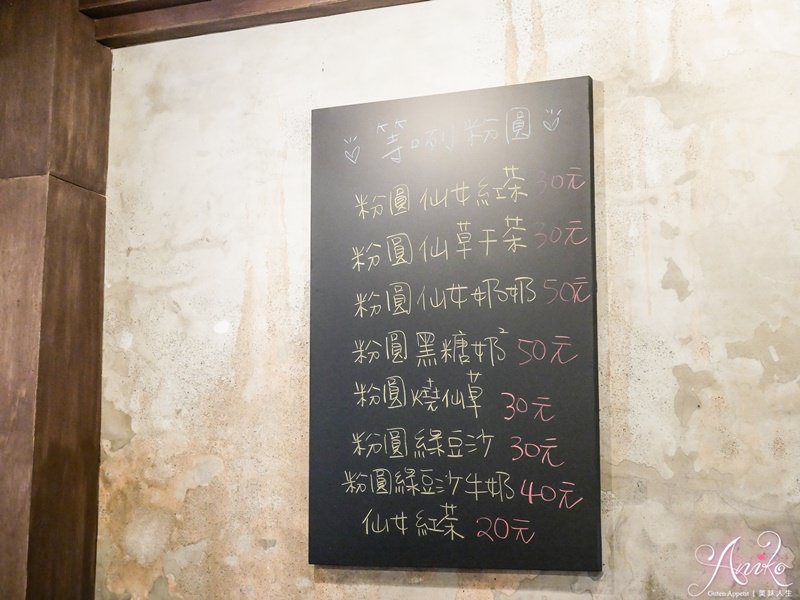 等咧粉圓
粉圓仙女紅茶 30元
粉圓仙草干茶 30元
粉圓仙女奶奶 50元
粉圓黑糖奶² 50元
粉圓燒仙草 30元
粉圓綠豆沙 30元
粉圓綠豆沙牛奶 40元
仙女紅茶 20元
Aniko
Guten Appetit | 美味人生